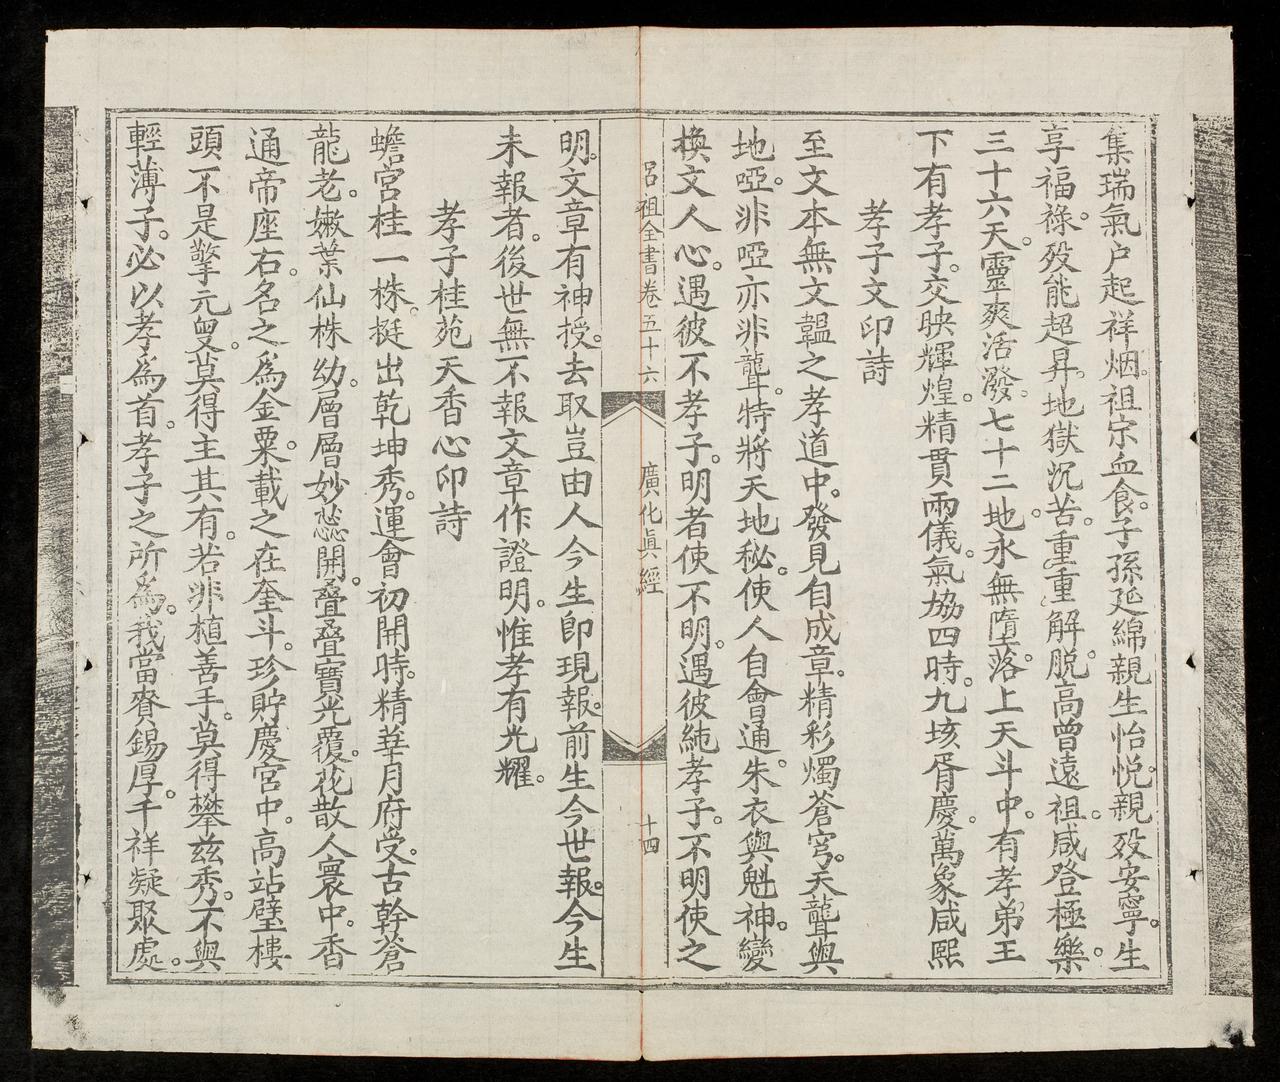 集瑞氣户起祥烟。祖宗血食。子孫延綿親生怡悅。親殁安寧。生
享福祿。殁能超昇。地獄沉苦。重重解脱。高曾遠祖。咸登極樂。
三十六天。靈爽活潑。七十二地。永無墮落。上天斗中。有孝弟王
下有孝子。交映輝煌。精貫兩儀。氣協四時。九垓胥慶。萬象咸熙
孝子文印詩
至文本無文韞之孝道中。發見自成章。精彩燭蒼穹。天聾與
地啞。非啞亦非聾。特將天地秘。使人自會通。朱衣與魁神。變
換文人心。遇彼不孝子。明者使不明。遇彼純孝子。不明使之
呂祖全書卷五十六 廣化眞經 十四
明。文章有神授。去取豈由人今生卽現報。前生今世報。今生
未報者。後世無不報文章作證明。惟孝有光耀。
孝子桂苑天香心印詩
蟾宮桂一株。挺出乾坤秀。運會初開時。精華月府受。古幹蒼
龍老。嫩葉仙株幼。層層妙蕊開。叠叠寶光覆。花散人寰中。香
通帝座右。名之爲金粟。載之在奎斗。珍貯慶宮中。高站璧樓
頭不是擎元叟。莫得主其有。若非植善手。莫得攀兹秀。不與
輕薄子。必以孝爲首。孝子之所爲。我當賚錫厚。千祥凝聚處。